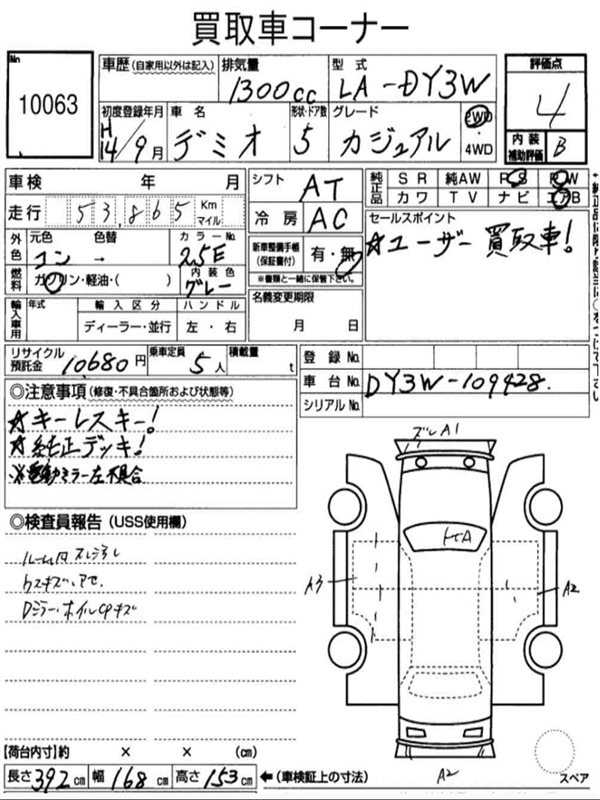 買取車コーナー
No. 10063
車歴 (自家用以外は記入) 排気量 1300cc 型式 LA-DY3W
評価点 4
初度登録年月 H14/9月 車名 デミオ 形状・ドア数 5 グレード カジュアル 2WD・4WD
内装補助評価 B
車検 年 月
走行 53,865 Km マイル
シフト AT
冷房 AC
純正品 SR 純AW PS PW
カワ TV ナビ エアB
外色 元色 コン → 色替 カラーNo. 25E
燃料 ガソリン・軽油・( ) 内装色 グレー
新車整備手帳 (保証書付) 有・無
※書類と一緒に保管下さい。
セールスポイント
☆ユーザー買取車!
輸入車用 年式 輸入区分 ハンドル
ディーラー・並行 左・右
名義変更期限
月 日
リサイクル預託金 10680円 乗車定員 5人 積載量 t
登録No.
車台No. DY3W-109428
シリアルNo.
◎注意事項 (修復・不具合箇所および状態等)
☆キーレスキー!
☆純正デッキ!
※電動ミラー左不具合
◎検査員報告 (USS使用欄)
ルーム内スレ
Dミラー・ホイルCPキズ
ズレA1
A3
A2
A2
スペア
【荷台内寸】約 × × (cm)
長さ392cm 幅168cm 高さ153cm ←(車検証上の寸法)